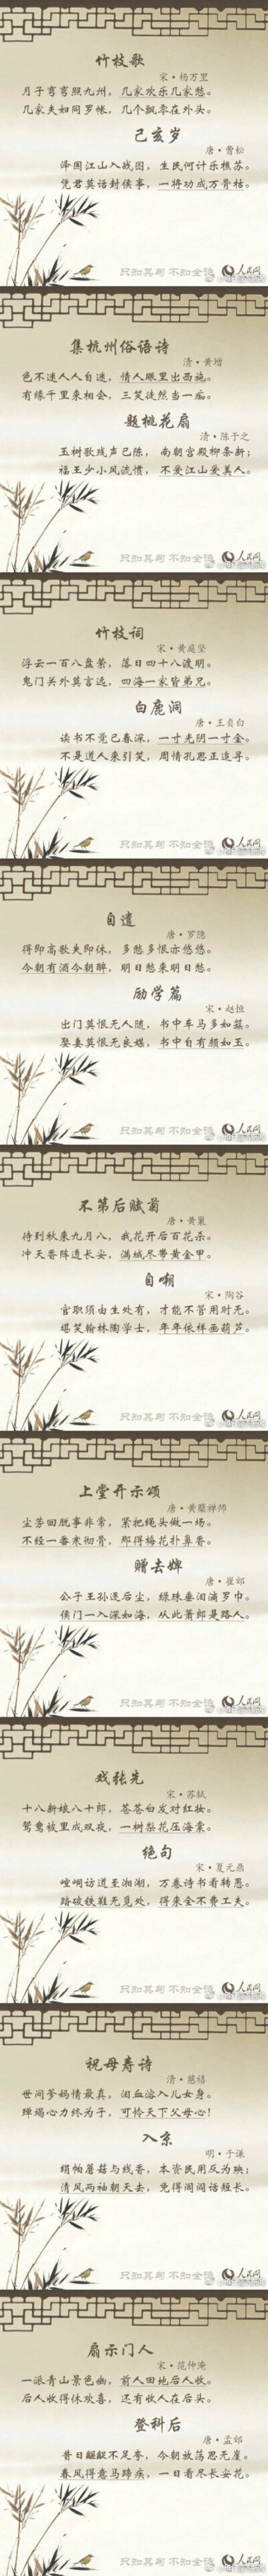 竹枝歌
宋·杨万里
月子弯弯照九州，几家欢乐几家愁。
几家夫妇同罗帐，几个飘零在外头。
己亥岁
唐·曹松
泽国江山入战图，生民何计乐樵苏。
凭君莫话封侯事，一将功成万骨枯。
只知其句 不知全诗
人民网
集杭州俗语诗
清·黄增
色不迷人人自迷，情人眼里出西施。
有缘千里来相会，三笑徒然当一痴。
题桃花扇
清·陈于之
玉树歌残声已陈，南朝宫殿柳条新；
福王少小风流惯，不爱江山爱美人。
只知其句 不知全诗
人民网
竹枝词
宋·黄庭坚
浮云一百八盘萦，落日四十八渡明。
鬼门关外莫言远，四海一家皆弟兄。
白鹿洞
唐·王贞白
读书不觉已春深，一寸光阴一寸金。
不是道人来引笑，周情孔思正追寻。
只知其句 不知全诗
人民网
自遣
唐·罗隐
得即高歌失即休，多愁多恨亦悠悠。
今朝有酒今朝醉，明日愁来明日愁。
励学篇
宋·赵恒
出门莫恨无人随，书中车马多如簇。
娶妻莫恨无良媒，书中自有颜如玉。
只知其句 不知全诗
人民网
不第后赋菊
唐·黄巢
待到秋来九月八，我花开后百花杀。
冲天香阵透长安，满城尽带黄金甲。
自嘲
宋·陶谷
官职须由生处有，才能不管用时无。
堪笑翰林陶学士，年年依样画葫芦。
只知其句 不知全诗
人民网
上堂开示颂
唐·黄蘖禅师
尘劳回脱事非常，紧把绳头做一场。
不经一番寒彻骨，那得梅花扑鼻香。
赠去婢
唐·崔郊
公子王孙逐后尘，绿珠垂泪滴罗巾。
侯门一入深如海，从此萧郎是路人。
只知其句 不知全诗
人民网
戏张先
宋·苏轼
十八新娘八十郎，苍苍白发对红妆。
鸳鸯被里成双夜，一树梨花压海棠。
绝句
宋·夏元鼎
崆峒访道至湘湖，万卷诗书看转愚。
踏破铁鞋无觅处，得来全不费工夫。
只知其句 不知全诗
人民网
祝母寿诗
清·慈禧
世间爹妈情最真，泪血溶入儿女身。
殚竭心力终为子，可怜天下父母心！
入京
明·于谦
绢帕蘑菇与线香，本资民用反为殃；
清风两袖朝天去，免得闾阎话短长。
只知其句 不知全诗
人民网
扇示门人
宋·范仲淹
一派青山景色幽，前人田地后人收。
后人收得休欢喜，还有收人在后头。
登科后
唐·孟郊
昔日龌龊不足夸，今朝放荡思无崖。
春风得意马蹄疾，一日看尽长安花。